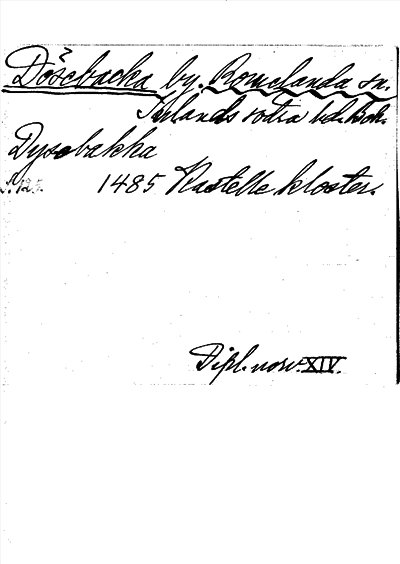 Dösebacka by. Romelanda sn.
Inlands södra hd. Boh.
Dysebakka
S. 125. 1485 Kastelle kloster.
Dipl. norv. XIV.